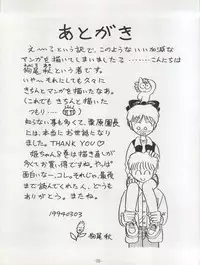 あとがき
え～、という訳で、このようないい加減な
マンガを描いてしまいました………こんたちは
狗尾 秋という者です。
いや～、それにしても久々に
きちんとマンガを描いたなあ。
(これでもきちんと描いた
つもり…
知らない事も多くて、栗原園長
には、本当にお世話になり
ました。THANK YOU♡
姫ちゃん8巻は描き直しが
多くてお買い得ですね。やっぱ
面白いなー、コレ。それじゃ、最後
まで読んでくれた人、どうも
ありがとう。またね。
19940303
狗尾 秋